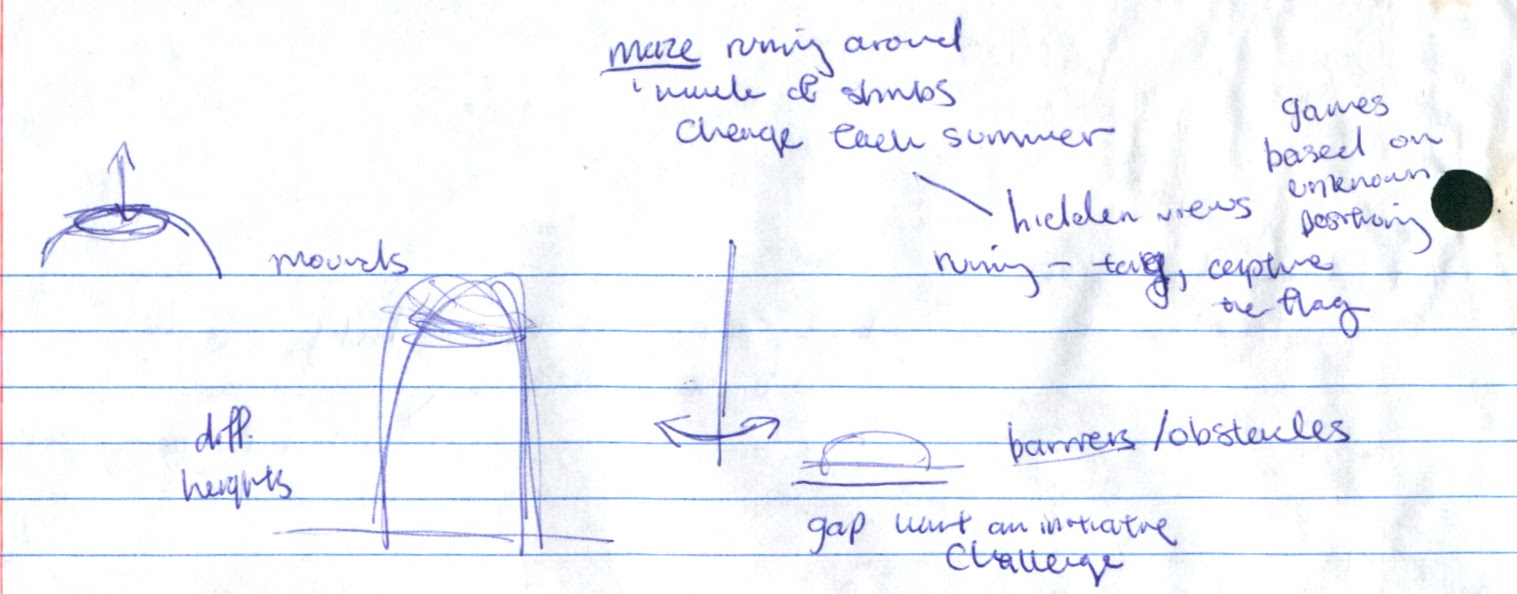 maze runing around
made of shrubs
change each summer
games
based on
unknown
positioning
hidden views
runing - tag, capture
the flag
mounds
diff.
heights
barriers /obstacles
gap want an initiative
challenge